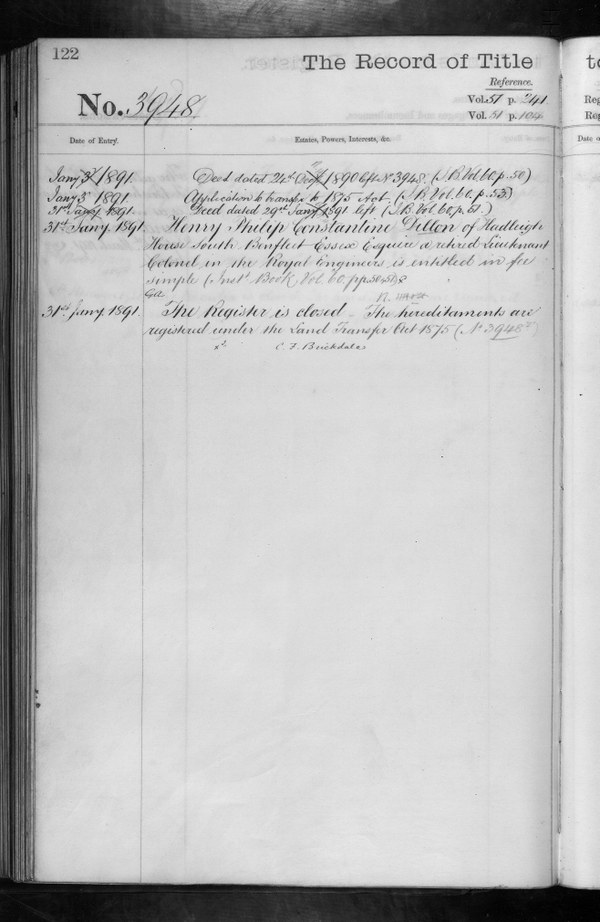 122
The Record of Title
to
Reference.
No. 3948
Vol. 51 p. 241
Vol. 51 p. 104
Reg
Date of Entry.
Entries, Powers, Interests, &c.
Date o
Jany 3 1891. Deed dated 24th 1890 left No 3948. (I. B. Vol. 60. p. 50)
Jany 3 1891. Application to transfer to 1875 Act. (I. B. Vol. 60. p. 53)
31st Jany. 1891. Deed dated 29th Jany 1891 left (I. B. Vol. 60. p. 51.)
31st Jany. 1891. Henry Philip Constantine Dillon of Hadleigh
House South Benfleet Essex Esquire a retired Lieutenant
Colonel in the Royal Engineers is entitled in fee
simple (Inst. Book, Vol. 60. pp. 50 & 51)
31st Jany. 1891. The Register is closed - The hereditaments are
registered under the Land Transfer Act 1875 (No 3948)
C. F. Brickdale